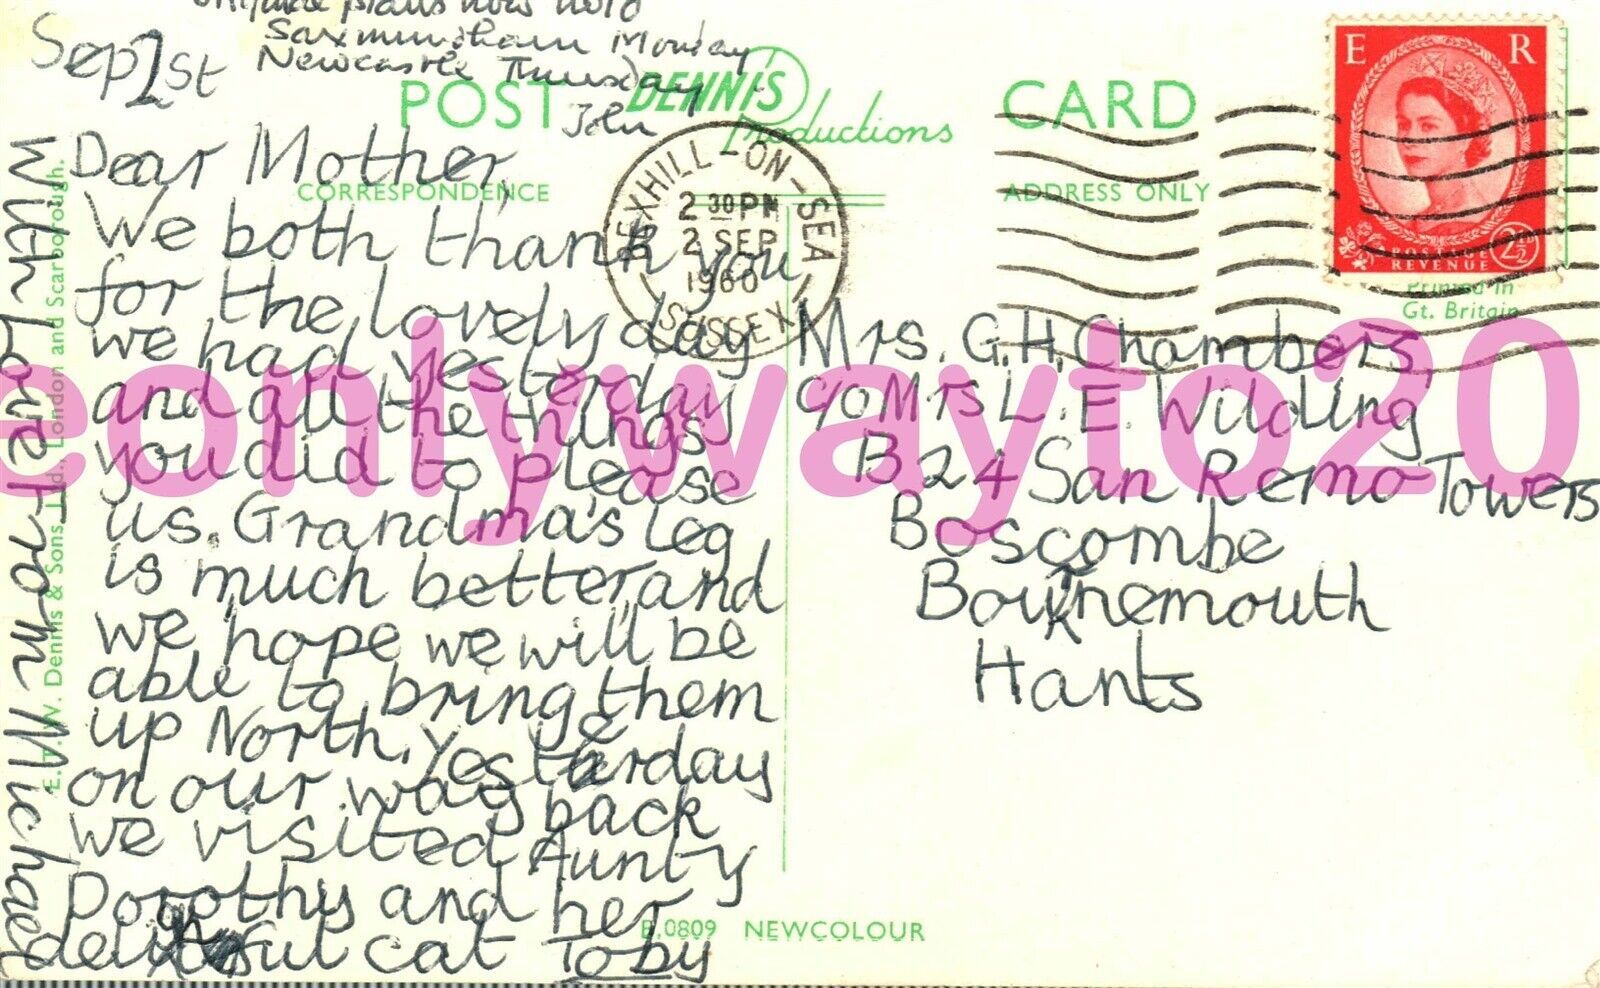 Original plans now hold
Saxmundham Monday
Newcastle Thursday
John
Sep 1st
POST CARD
DENNIS
Productions
CORRESPONDENCE
ADDRESS ONLY
Dear Mother,
We both thank you
for the lovely day
we had yesterday
and all the things
you did to please
us. Grandma's Leg
is much better and
we hope we will be
able to bring them
up North. Yesterday
on our way back
we visited Aunty
Dorothy and her
delightful cat Toby
With Love From Michael
E.T.W. Dennis & Sons Ltd., London and Scarborough.
BEXHILL-ON-SEA
2 30 PM
2 SEP
1960
SUSSEX
E R
POSTAGE
REVENUE
2½D
Printed in
Gt. Britain
Mrs. G.H. Chambers
c/o Mrs L.E. Wilding
B24 San Remo Towers
Boscombe
Bournemouth
Hants
B.0809 NEWCOLOUR
eonlywayto20